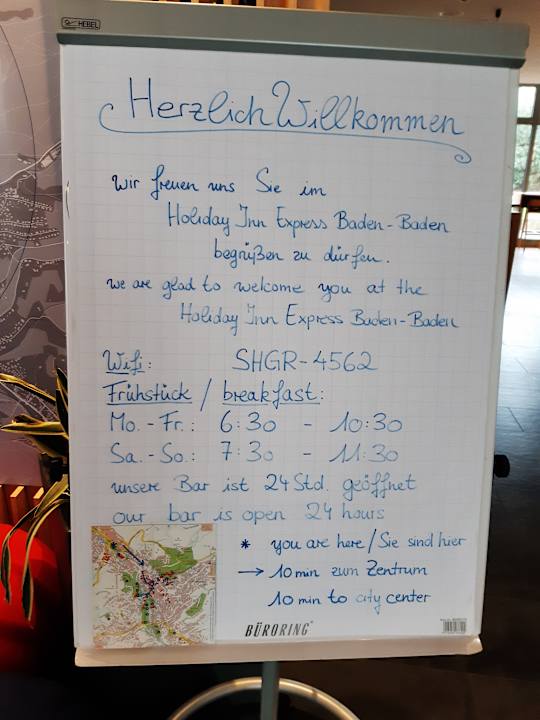 HEBEL
Herzlich Willkommen
Wir freuen uns Sie im
Holiday Inn Express Baden-Baden
begrüßen zu dürfen.
we are glad to welcome you at the
Holiday Inn Express Baden-Baden
Wifi: SHGR-4562
Frühstück / breakfast:
Mo. - Fr.: 6:30 - 10:30
Sa. - So.: 7:30 - 11:30
unsere Bar ist 24 Std. geöffnet
our bar is open 24 hours
* you are here / Sie sind hier
→ 10 min zum Zentrum
10 min to city center
BÜRORING